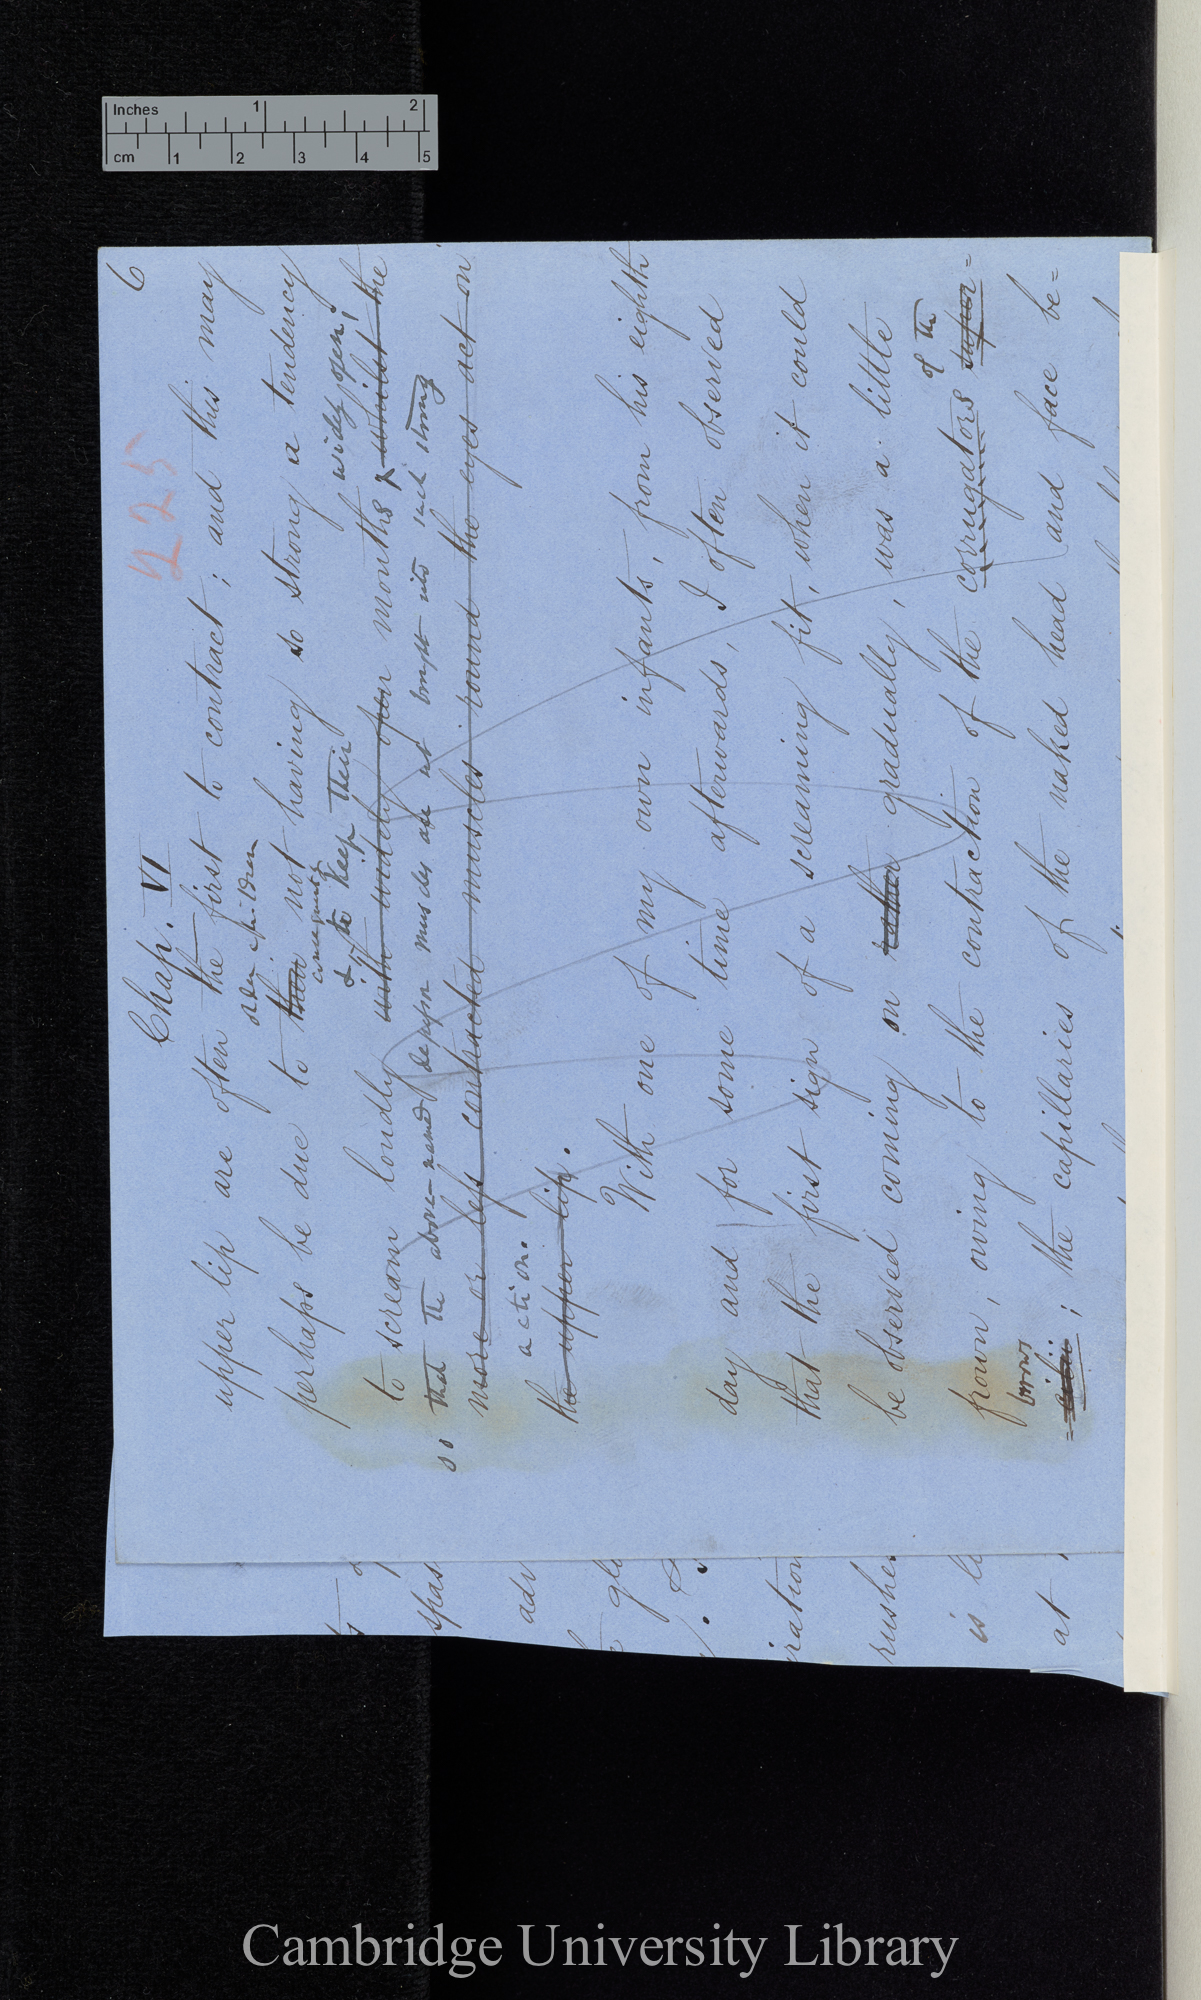 Inches 1 2
cm 1 2 3 4 5
6
225
Chap. VI
upper lip are often the first to contract; and this may
older children
perhaps be due to their not having so strong a tendency
consequently
& to keep their widely open;
to scream loudly with widely open mouths & whilst the
so that the above-named depressor muscles are not brought into such strong
more or less contracted muscles round the eyes act on
action.
the upper lip.
With one of my own infants, from his eighth
day and for some time afterwards, I often observed
that the first sign of a screaming fit, when it could
be observed coming on rather gradually, was a little
of the
frown, owing to the contraction of the corrugators super=
brows
=cilii; the capillaries of the naked head and face be=
spas
adv
rushe
is
at
Cambridge University Library